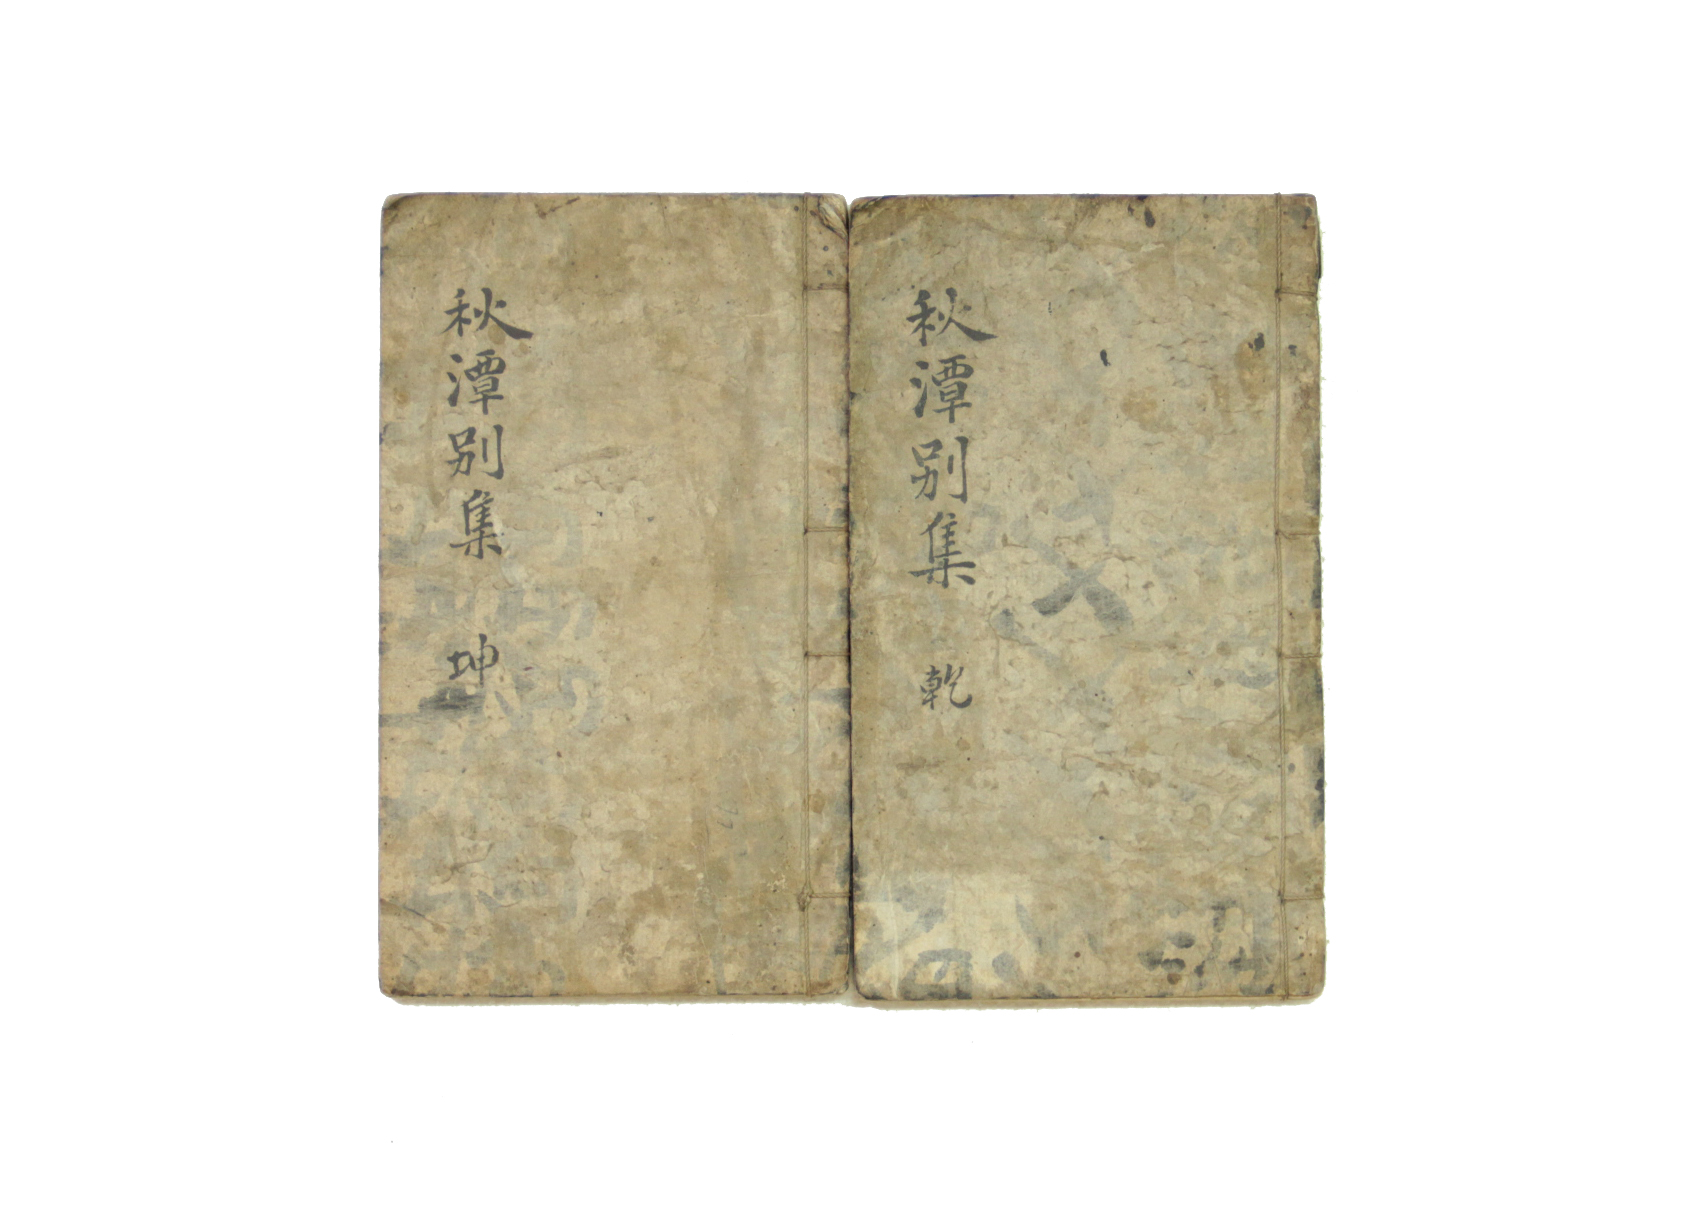 秋潭別集 乾
秋潭別集 坤